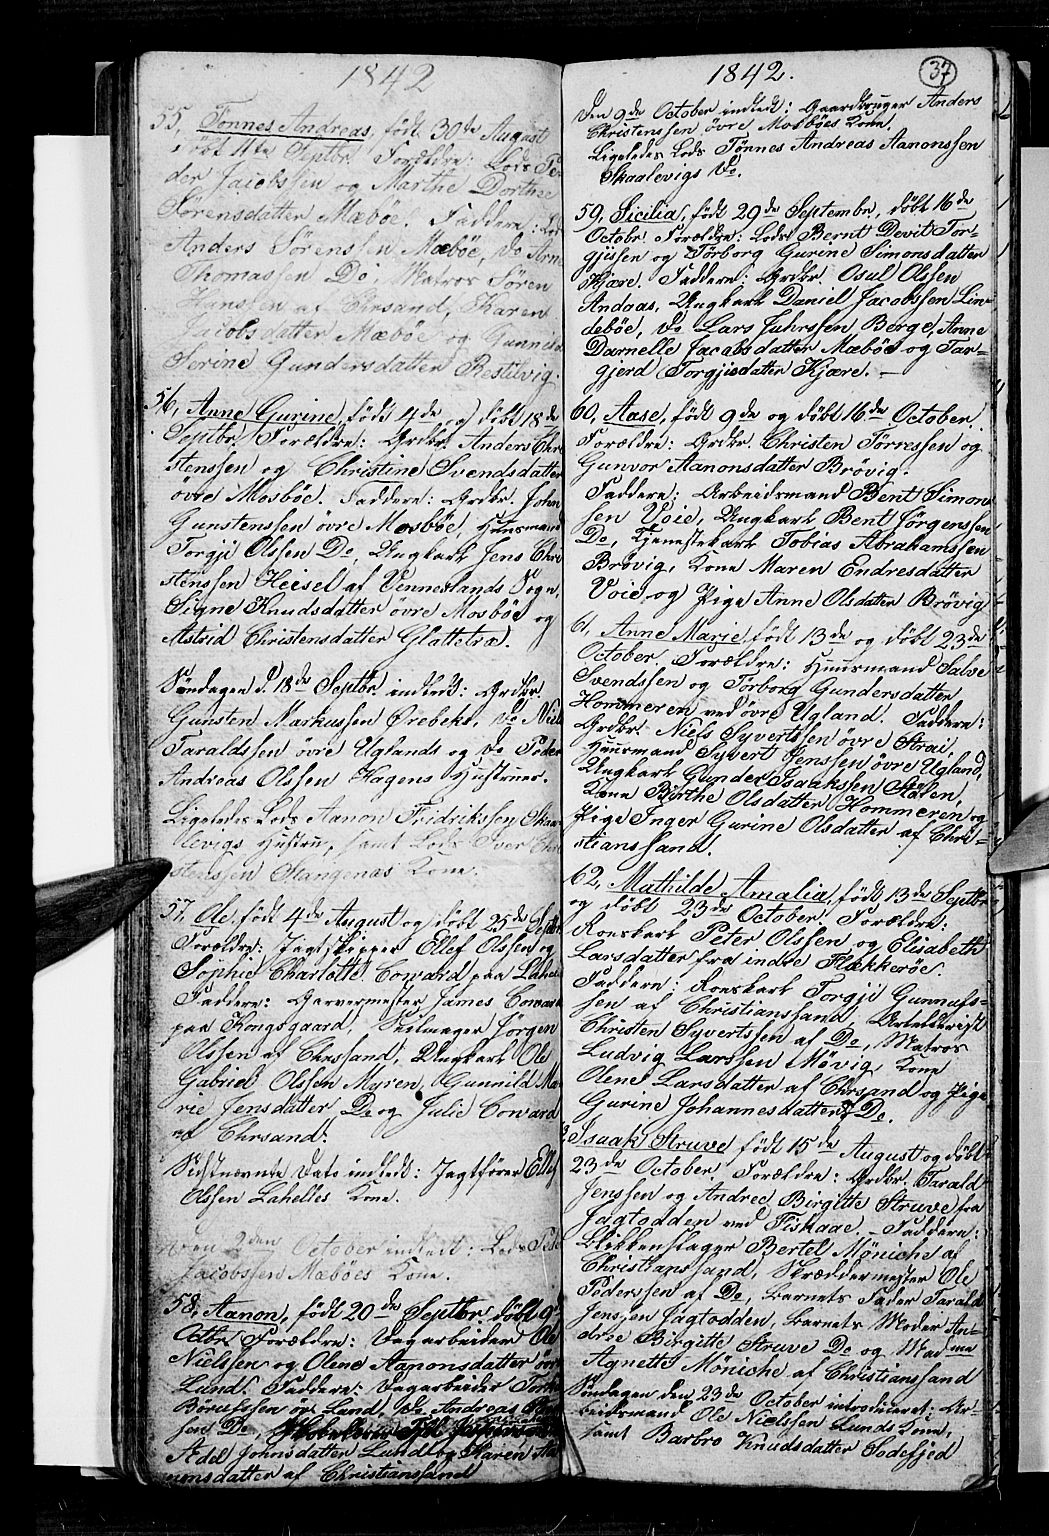 1842
55, Tønnes Andreas, født 30te August
døbt 11te Septbr. Forældre: Lods Pe-
der Jacobssen og Marthe Dorthee
Sørensdatter Mæbøe. Faddere: Lods
Anders Sørenssen Mæbøe, do Arne
Thomassen Do, Matros Søren
Hanssen af Chrsand, Karen
Jacobsdatter Mæbøe og Gunnild
Serine Gundersdatter Bestelvig.
56, Anne Gurine, født 4de og døbt 18de
Septbr. Forældre: Grdbr. Anders Chri-
stenssen og Christine Svendsdatter
øvre Mosbøe. Faddere: Grdbr. John
Gunstenssen øvre Mosbøe, Huusmand
Torgje Olssen Do, Ungkarl Jens Chri-
stenssen Heisel af Venneslands Sogn,
Signe Knudsdatter øvre Mosbøe og
Astrid Christensdatter Glattetræ.
Søndagen d. 18de Septbr. indledt: Grdbr.
Gunsten Markussen Ørebeks, do Niels
Taraldssen øvre Uglands og do Peder
Andreas Olssen Hagens Hustruer.
Ligeledes Lods Aanon Fredrikssen Skaa-
levigs Hustru, samt Lods Iver Chri-
stenssen Stangenæs Kone.
57, Ole, født 4de August og døbt 25de Septbr.
Forældre: Jagtskipper Ellef Olssen og
Sophie Charlotte Coward paa Lahelle
Faddere: Garvermester James Coward
paa Kongsgaard, Seilmager Jørgen
Olssen af Chrssand, Ungkarl Ole
Gabriel Olssen Myren, Gunnild Ma-
rie Jensdatter Do og Julie Coward
af Chrsand.
Sidstnævnte Dato indledt: Jagtfører Ellef
Olssen Lahelles Kone.
Den 2den October indledt: Lods Peder
Jacobssen Mæbøes Kone.
58, Aanon, født 20de Septbr. døbt 9de
Octbr. Forældre: Dagarbeider Ole
Nielssen og Olene Aanonsdatter øvre
Lund. Faddere: Dagarbeider
ov Lund, do Andreas
sen Do,
Adel Johnsdatter Lund og Karen Aa-
nonsdatter af Christianssand
1842.
37
Den 9de October indledt: Gaardbruger Anders
Christenssen øvre Mosbøes Kone.
Ligeledes Lods Tønnes Andreas Aanonssen
Skaalevigs do.
59, Sicilia, født 29de Septembr, døbt 16de
Octobr. Forældre: Lods Bernt Devit Tor-
gjussen og Tørborg Gurine Simonsdatter
Kjære. Faddere: Grdbr. Osul Olssen
Andaas, Ungkarl Daniel Jacobssen Lin-
debøe, do Lars Juhrssen Berge, Anne
Darnelle Jacobsdatter Mæbøe og Tar-
gjerd Torgjusdatter Kjære.
60, Aase, født 9de og døbt 16de October.
Forældre: Grdbr. Christen Tørressen og
Gunvor Aanonsdatter Brøvig.
Faddere: Arbeidsmand Bent Simons-
sen Voie, Ungkarl Bent Jørgenssen
Do, Tjenestekarl Tobias Abrahamssen
Brøvig, Kone Maren Endresdatter
Voie og Pige Anne Olsdatter Brøvig
61, Anne Marie, født 13de og døbt 23de
October. Forældre: Huusmand Salve
Svendssen og Tørborg Gundersdatter
Hommeren ved øvre Ugland. Faddere:
Grdbr. Niels Syvertssen øvre Strai,
Huusmand Syvert Jenssen øvre Ugland,
Ungkarl Gunder Isaakssen Støten,
Kone Birthe Olsdatter Hommeren og
Pige Inger Gurine Olsdatter af Chri-
stianssand.
62, Mathilde Amalia, født 13de Septbr
og døbt 23de October. Forældre:
Roeskarl Peter Olssen og Elisabeth
Larsdatter fra indre Flækkerøe.
Faddere: Roeskarl Torgje Gunnufs-
sen af Christianssand, Artillerist
Christen Syvertssen af Do, Matros
Ludvig Larssen Møvig, Kone
Olene Larsdatter af Chrsand og Pige
Gurine Johannesdatter af Do.
Isaak Struve født 15de August og døbt
23de October. Forældre: Grdbr. Tarald
Jenssen og Andree Birgitte Struve fra
Jagtodden ved Fiskaae. Faddere:
Blikkenslager Bertel Møniche af
Christianssand, Skræddermester Ole
Pederssen af Do, Barnets Fader Tarald
Jenssen Jagtodden, Barnets Moder An-
dree Birgitte Struve Do og Madme
Agnette Møniche af Christianssand
Søndagen den 23de October introduceret: Ar-
beidsmand Ole Nielssen Lunds Kone,
samt Barbro Knudsdatter Sodefjed